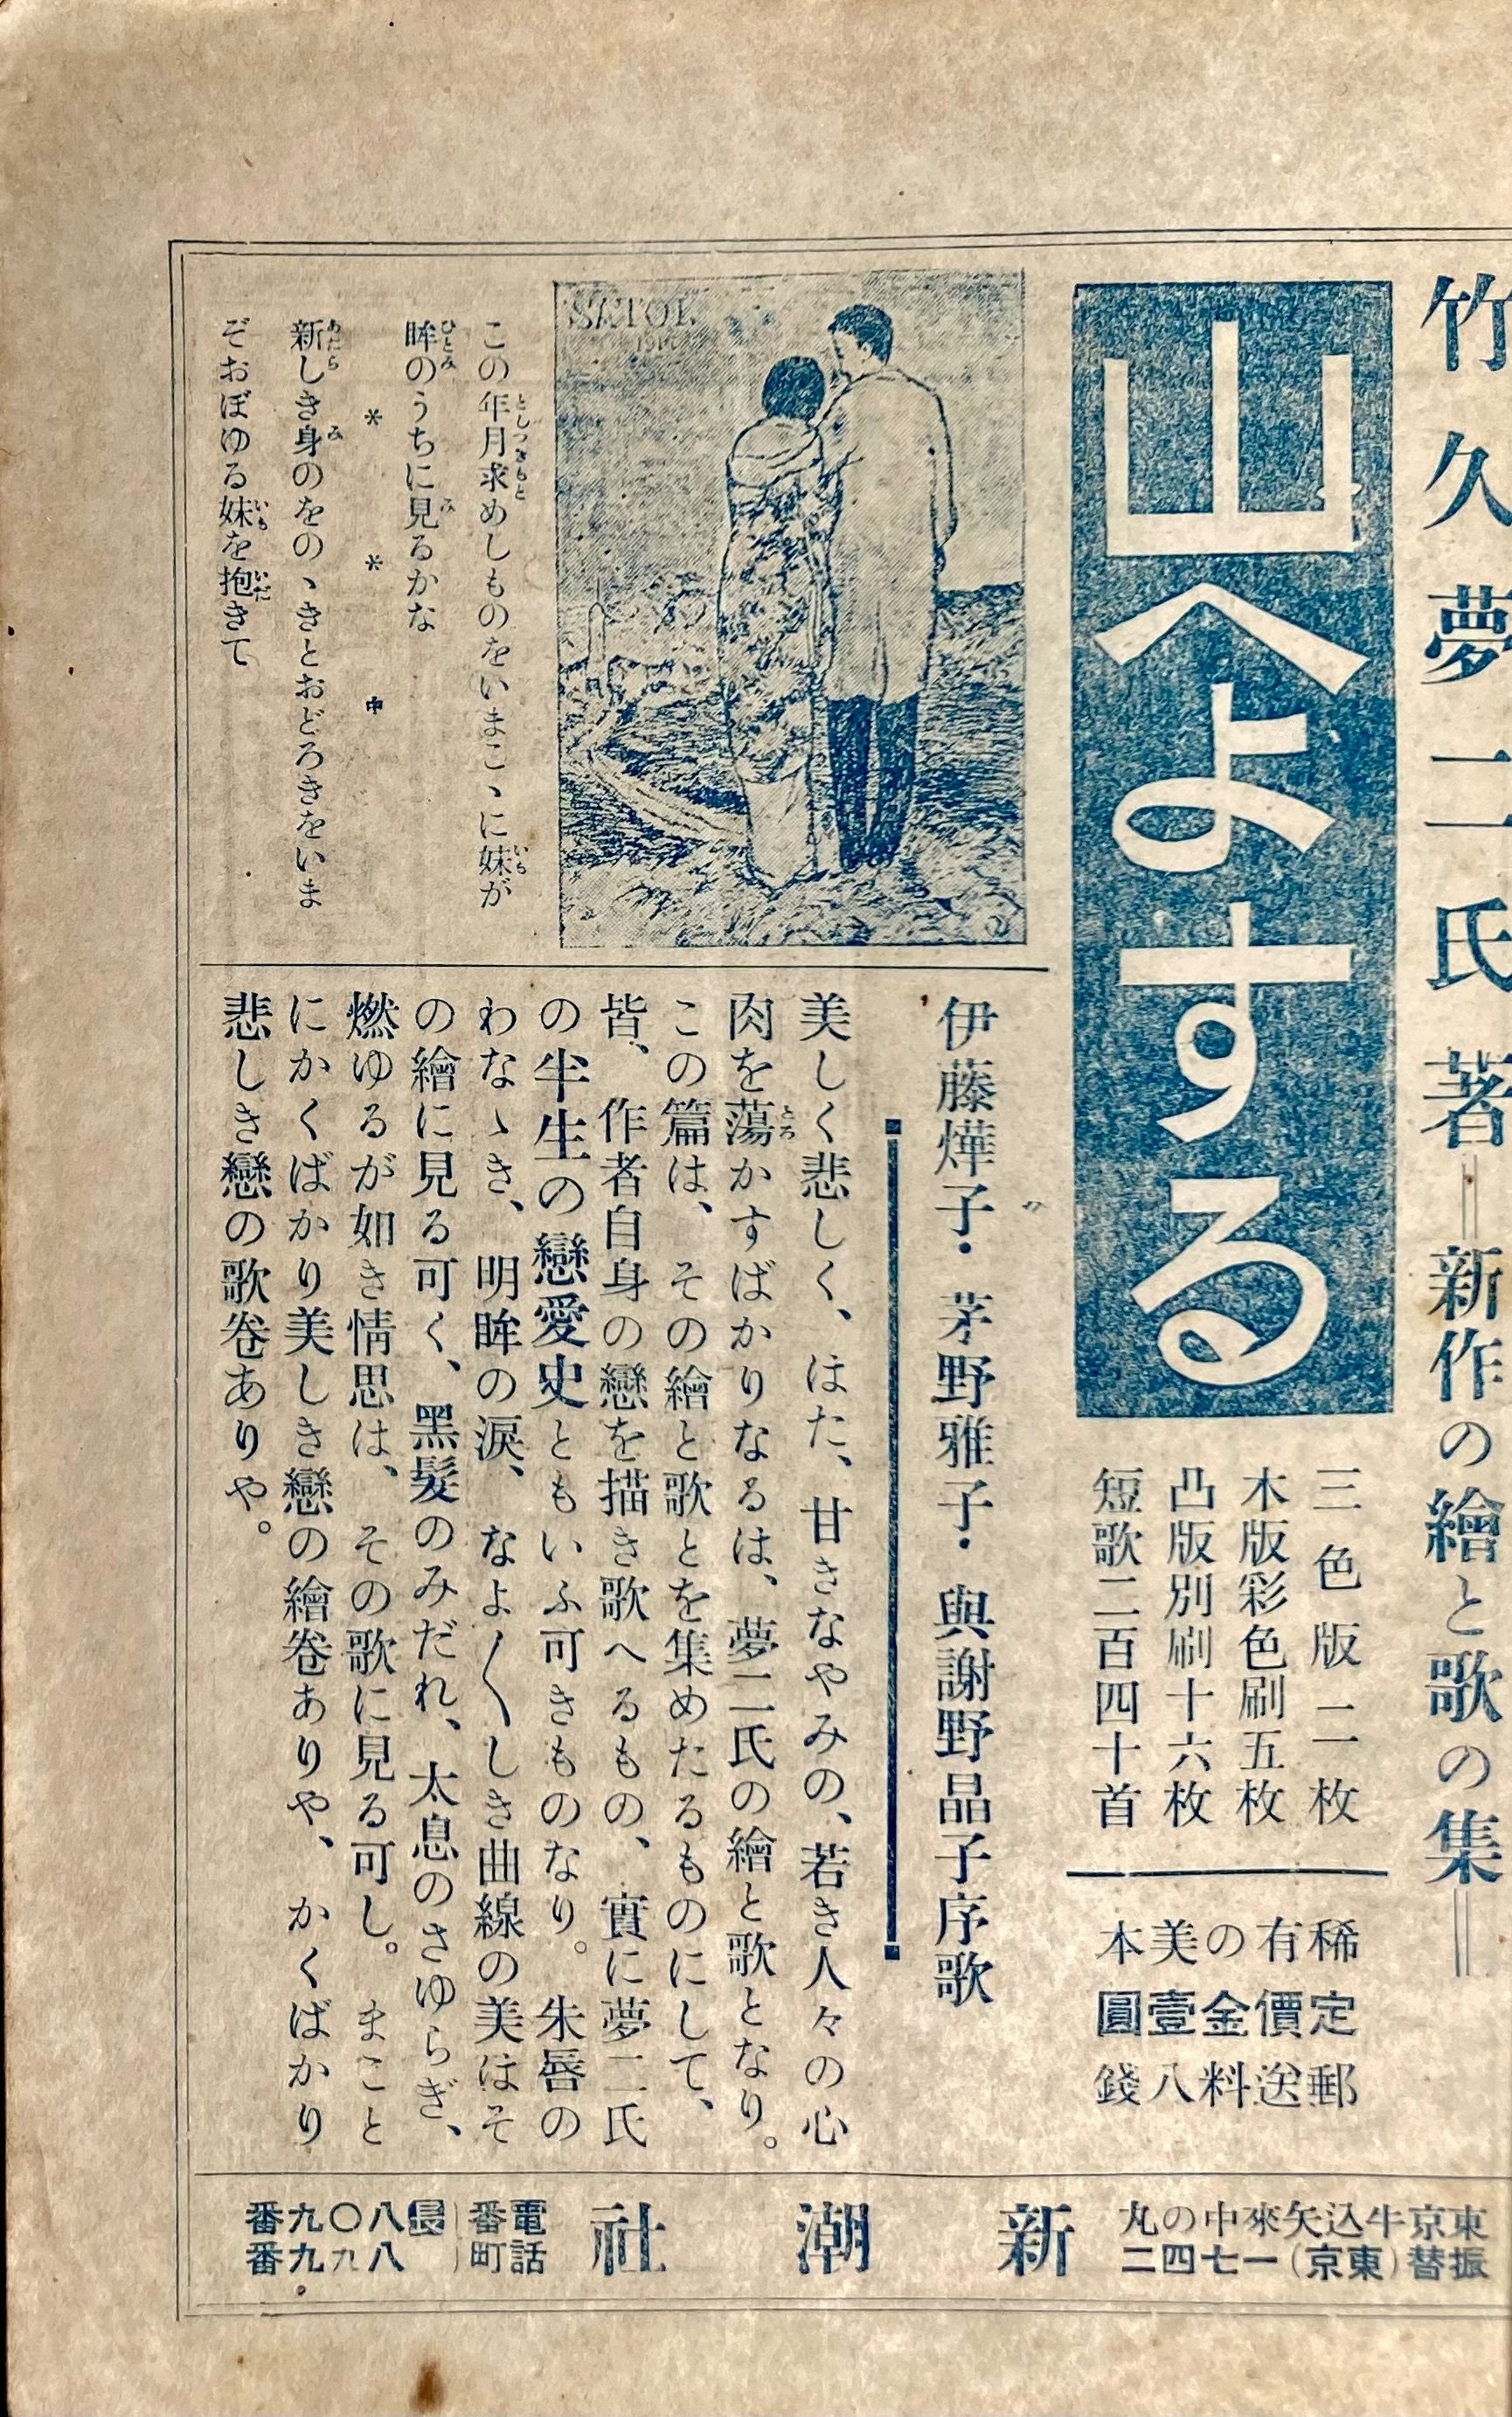 竹久夢二氏著＝新作の繪と歌の集＝
山へよする
三色版二枚
木版彩色刷五枚
凸版別刷十六枚
短歌二百四十首
稀有の美本
定價金壹圓
郵送料八錢
伊藤燁子・茅野雅子・與謝野晶子序歌
この年月求めしものをいまこゝに妹が
眸のうちに見るかな
＊　＊　＊
新しき身のをのゝきとおどろきをいま
ぞおぼゆる妹を抱きて
美しく悲しく、はた、甘きなやみの、若き人々の心
肉を蕩かすばかりなるは、夢二氏の繪と歌となり。
この篇は、その繪と歌とを集めたるものにして、
皆、作者自身の戀を描き歌へるもの、實に夢二氏
の半生の戀愛史ともいふ可きものなり。朱唇の
わなゝき、明眸の淚、なよ〱しき曲線の美はそ
の繪に見る可く、黑髮のみだれ、太息のさゆらぎ、
燃ゆるが如き情思は、その歌に見る可し。まこと
にかくばかり美しき戀の繪卷ありや、かくばかり
悲しき戀の歌卷ありや。
東京牛込矢來中の丸
振替(東京)一七四二
新潮社
電話番町
長八〇九番
八九九番